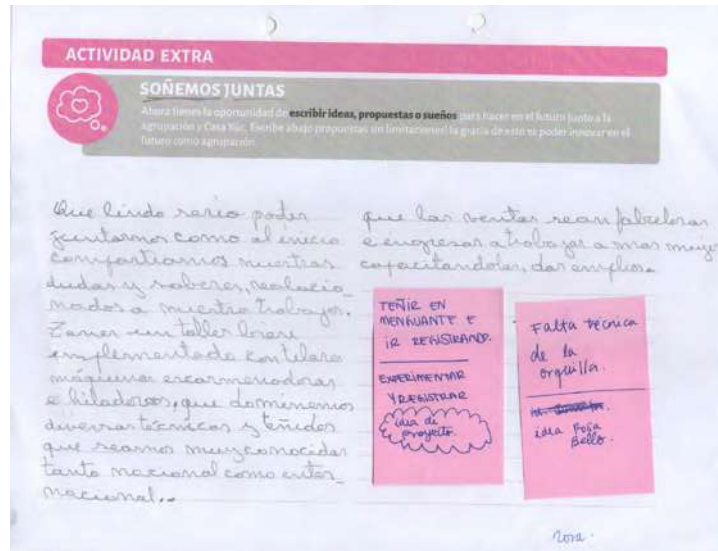 ACTIVIDAD EXTRA
SOÑEMOS JUNTAS
Ahora tienes la oportunidad de escribir ideas, propuestas o sueños para hacer en el futuro junto a la
agrupación y Casa Küc. Escribe abajo propuestas sin limitaciones! la gracia de esto es poder innovar en el
futuro como agrupación
Que lindo seria poder
juntarnos como al inicio
compartiamos nuestras
dudas y saberes, relacio_
nados a nuestro trabajos.
Tener un taller bien
implementado con telares
máquinas escarmenadoras
e hiladoras, que dominemos
diversas tecnicas y teñidos
que seamos muy conocidas
tanto nacional como inter_
nacional..
que las ventas sean fabulosas
e ingresar a trabajar a mas mujer
capacitandolas, dar empleos.
TEÑIR EN
MENGUANTE E
IR REGISTRANDO.
EXPERIMENTAR
Y REGISTRAR
idea de
proyecto.
Falta técnica
de la
orquilla.
idea Rosa
Bello.
Rosa.